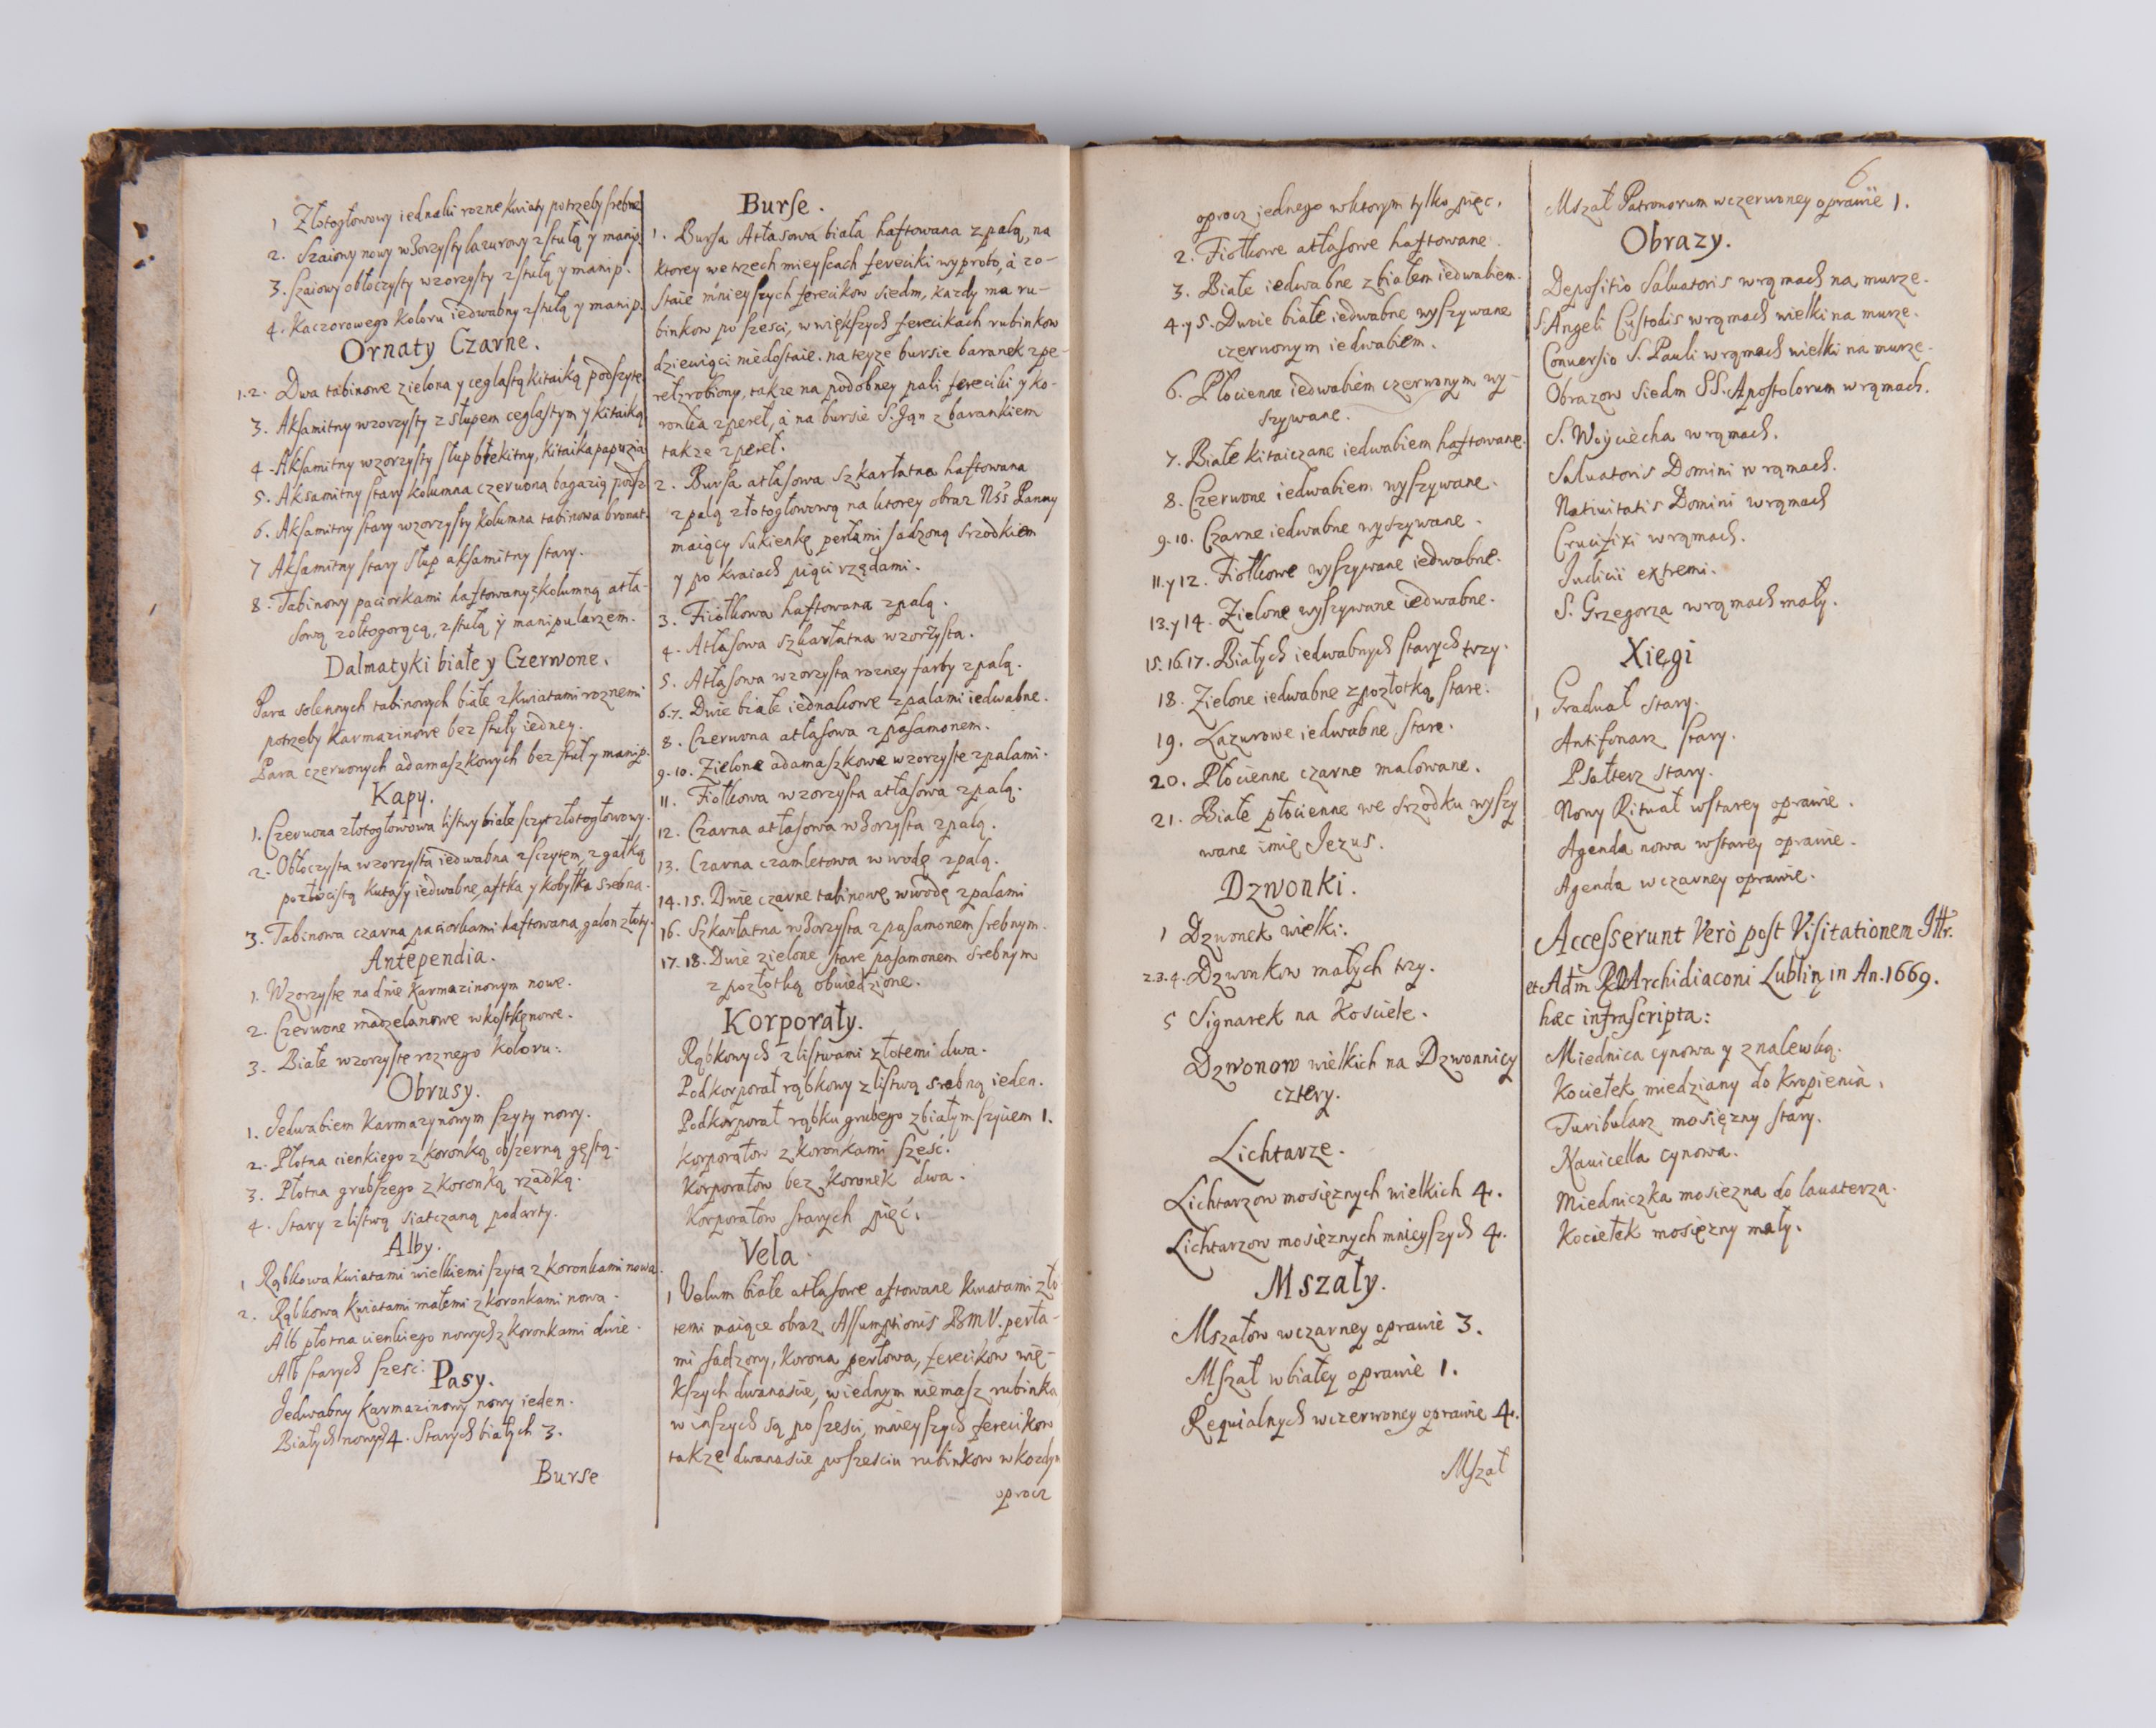 1 Złotogłowowy iednaki rozne kwiaty potrzeby srebne
2. Szaiowy nowy wzorzysty lazurowy z stułą y manip.
3. Szaiowy obłoczysty wzorzysty z stułą y manip.
4. Kaczorowego koloru iedwabny z stułą y manip.
Ornaty Czarne.
1.2. Dwa tabinowe zieloną y ceglastą kitaiką podszyte
3. Aksamitny wzorzysty z słupem ceglastym y kitaiką
4. Aksamitny wzorzysty słup błekitny, kitaika papuzia
5. Aksamitny stary kolumna czerwona bagazią podsz
6. Aksamitny stary wzorzysty kolumna tabinowa bronat.
7 Aksamitny stary słup aksamitny stary.
8. Tabinowy paciorkami haftowany z kolumną atła-
sową zołtogorącą, z stułą y manipularzem.
Dalmatyki białe y Czerwone.
Para solennych tabinowych białe z kwiatami roznemi
potrzeby karmazinowe bez stuły iedney.
Para czerwonych adamaszkowych bez stuł y manip.
Kapy.
1. Czerwona złotogłowowa listwy białe sczyt złotogłowowy.
2. Obłoczysta wzorzysta iedwabna z sczytem, z gałką
pozłocistą kutasy iedwabne, aftka y kobyłka srebna.
3. Tabinowa czarna paciorkami haftowana galon złoty.
Antependia.
1. Wzorzyste na dnie karmazinowym nowe.
2. Czerwone madzelanowe w kostkę nowe.
3. Białe wzorzyste roznego koloru.
Obrusy.
1. Jedwabiem karmazynowym szyty nowy.
2. Płotna cienkiego z koronką obszerną gęstą.
3. Płotna grubszego z koronką rzadką.
4. Stary z listwą siatczaną podarty.
Alby.
1 Rąbkowa kwiatami wielkiemi szyta z koronkami nowa.
2. Rąbkowa kwiatami małemi z koronkami nowa.
Alb płotna cienkiego nowych z koronkami dwie.
Alb starych szesc.
Pasy.
Jedwabny karmazinowy nowy ieden.
Białych nowych 4. Starych białych 3.
Burse
Burse.
1. Bursa Atłasowa biała haftowana z palą, na
ktorey we trzech mieyscach fereciki wyproto, à zo-
staie mnieyszych ferecikow siedm, kazdy ma ru-
binkow po szesci, w większych ferecikach rubinkow
dziewiąci niedostaie. na teyze bursie baranek z pe-
reł zrobiony, takze na podobney pali fereciki y ko-
ronka z pereł, à na bursie S. Jan z barankiem
takze z pereł.
2. Bursa atłasowa szkarłatna haftowana
z palą złotogłowową na ktorey obraz Nsś Panny
maiący sukienkę perłami sadzoną srzodkiem
y po kraiach piąci rzędami.
3. Fiołkowa haftowana z palą.
4. Atłasowa szkarłatna wzorzysta.
5. Atłasowa wzorzysta rozney farby z palą.
6.7. Dwie białe iednakowe z palami iedwabne.
8. Czerwona atłasowa z pasamonem.
9.10. Zielone adamaszkowe wzorzyste z palami.
11. Fiołkowa wzorzysta atłasowa z palą.
12. Czarna atłasowa wzorzysta z palą.
13. Czarna czamletowa w wodę z palą.
14.15. Dwie czarne tabinowe w wodę z palami
16. Szkarłatna wzorzysta z pasamonem srebnym.
17.18. Dwie zielone stare pasamonem srebnym
z pozłotką obwiedzione.
Korporały.
Rąbkowych z listwami złotemi dwa.
Podkorporał rąbkowy z listwą srebną ieden.
Podkorporał rąbku grubego z białym szyciem 1.
Korporałow z koronkami szesć.
Korporałow bez koronek dwa.
Korporałow starych pięć.
Vela
1 Velum białe atłasowe aftowane kwiatami zło
temi maiące obraz Assumptionis BMV. perła-
mi sadzony, korona perłowa, ferecikow wię-
kszych dwanascie, w iednym niemasz rubinka
w inszych są po szesci, mnieyszych ferecikow
takze dwanascie po szesciu rubinkow w kozdym
oprocz
6
oprocz jednego w ktorym tylko pięc.
2. Fiołkowe atłasowe haftowane.
3. Białe iedwabne z białem iedwabiem.
4. y 5. Dwie białe iedwabne wyszywane
czerwonym iedwabiem.
6. Płocienne iedwabiem czerwonym wy-
szywane.
7. Białe kitaiczane iedwabiem haftowane.
8. Czerwone iedwabiem wyszywane.
9.10. Czarne iedwabne wyszywane.
11. y 12. Fiołkowe wyszywane iedwabne.
13. y 14. Zielone wyszywane iedwabne.
15.16.17. Białych iedwabnych starych trzy.
18. Zielone iedwabne z pozłotką stare.
19. Lazurowe iedwabne stare.
20. Płocienne czarne malowane.
21. Białe płocienne we srzodku wyszy
wane imię Jezus.
Dzwonki.
1 Dzwonek wielki.
2.3.4. Dzwonkow małych trzy.
5 Signarek na Kosciele.
Dzwonow wielkich na Dzwonnicy
cztery.
Lichtarze.
Lichtarzow mosięznych wielkich 4.
Lichtarzow mosięznych mnieyszych 4.
Mszały.
Mszałow w czarney oprawie 3.
Mszał w białey oprawie 1.
Requialnych w czerwoney oprawie 4.
Mszał
Mszał Patronorum w czerwoney oprawie 1.
Obrazy.
Depositio Saluatoris w rąmach na murze.
S. Angeli Custodis w rąmach wielki na murze.
Conuersio S. Pauli w rąmach wielki na murze.
Obrazow siedm SS. Apostolorum w rąmach.
S. Woyciecha w rąmach.
Saluatoris Domini w rąmach.
Natiuitatis Domini w rąmach
Crucifixi w rąmach.
Judicii extremi.
S. Grzegorza w rąmach mały.
Xięgi
1 Graduał stary.
Antifonarz stary.
Psałterz stary.
Nowy Rituał w starey oprawie.
Agenda nowa w starey oprawie.
Agenda w czarney oprawie.
Accesserunt Verò post Visitationem Illr.
et Adm RD Archidiaconi Lublin in An. 1669.
hæc infrascripta:
Miednica cynowa y z nalewką.
Kociełek miedziany do kropienia.
Turibularz mosięzny stary.
Nauicella cynowa.
Miedniczka mosiezna do lauaterza.
Kociełek mosięzny mały.